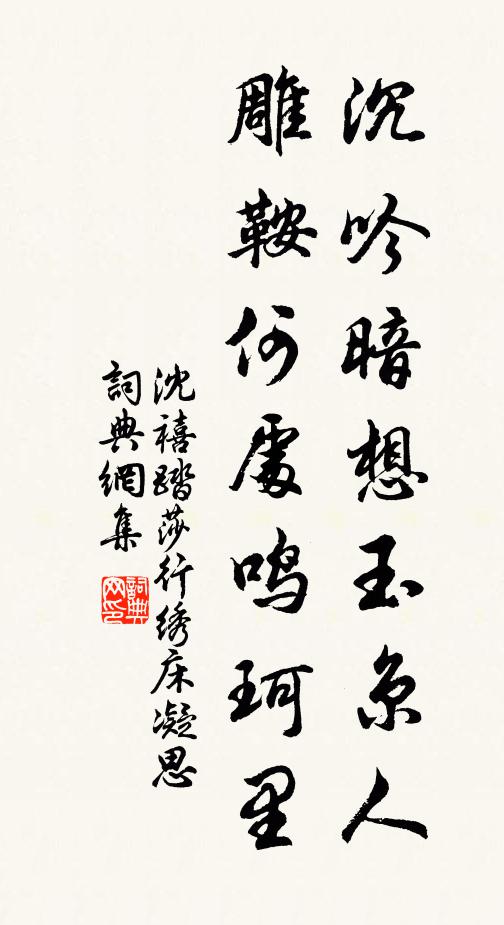 沉吟暗想玉京人
雕鞍何處鳴珂里
沈禧踏莎行绣床凝思
詞典網集
詞典
网印